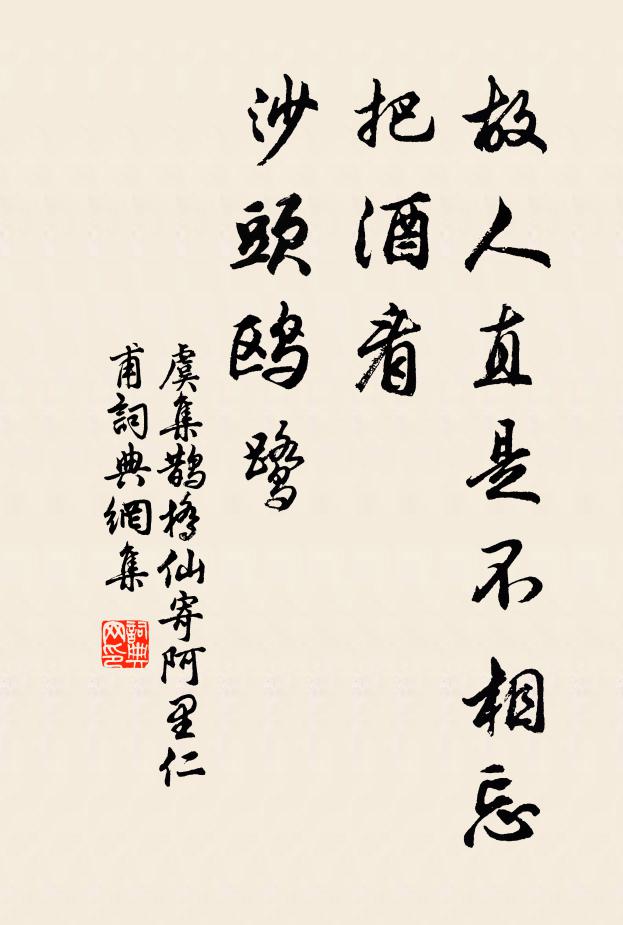 故人直是不相忘
把酒看
沙頭鸥鹭
虞集鹊橋仙寄阿里仁
甫詞典網集
詞典
网印